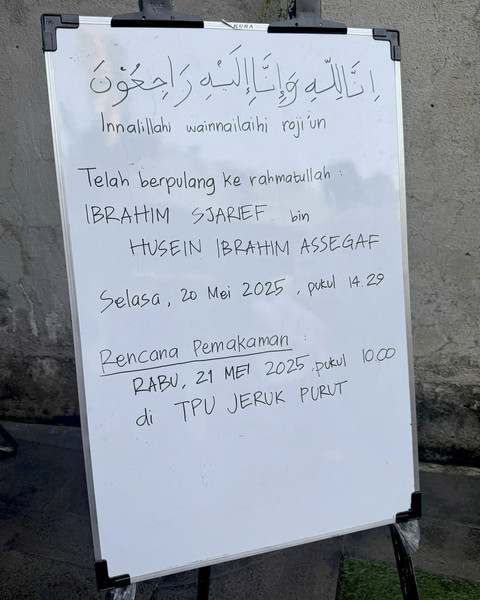 KUNA
إِنَّا لِلّهِ وَإِنَّا إِلَيْهِ رَاجِعُوْنَ
Innalillahi wainnailaihi roji'un
Telah berpulang ke rahmatullah :
IBRAHIM SJARIEF bin
HUSEIN IBRAHIM ASSEGAF
Selasa, 20 Mei 2025, pukul 14.29
Rencana Pemakaman :
RABU, 21 MEI 2025, pukul 10.00
di TPU JERUK PURUT